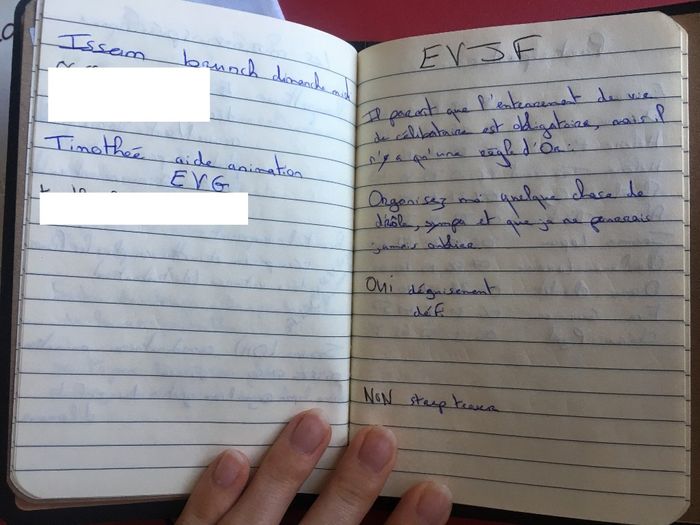 Issam brunch dimanche midi
Timothée aide animation
EVG
EVJF
Il parait que l'enterrement de vie
de célibataire est obligatoire, mais il
n'y a qu'une règle d'Or:
Organisez moi quelque chose de
drôle, sympa et que je ne pourrais
jamais oublier
Oui déguisement
défi
NON stripteaseur